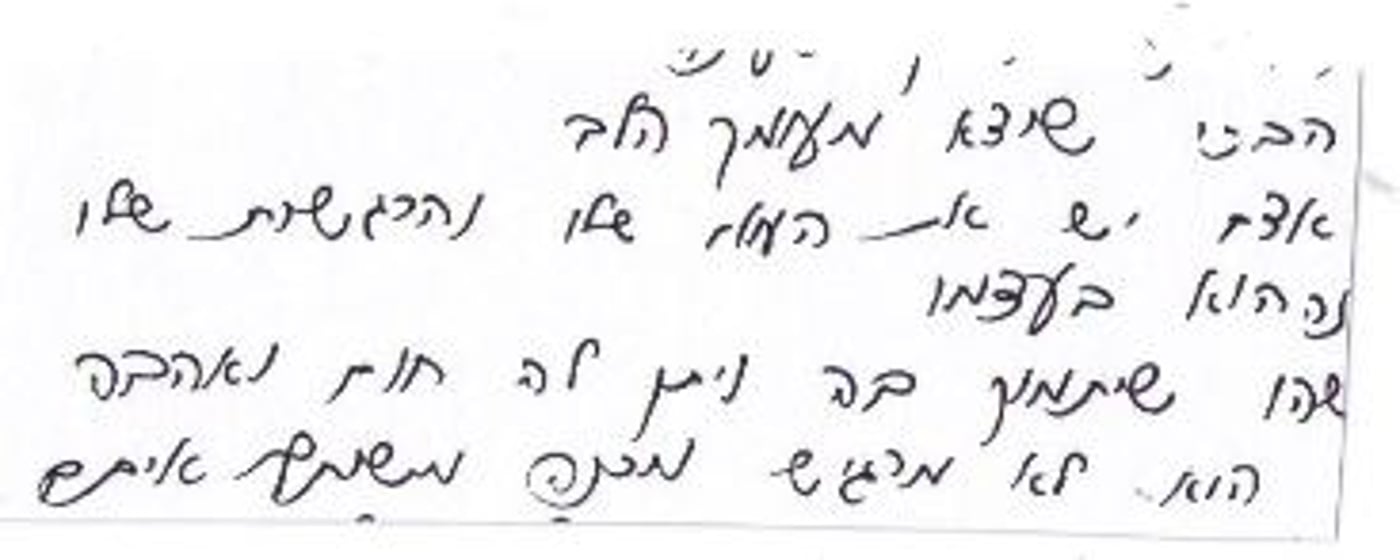 הבכי שיצא מעומק הלב
אצת יש את המוח שלו והרגשות שלו
הוא בעצמו
שהו שיתמוך בה ויתן לה חום ואהבה
הוא לא מרגיש משתתף איתם